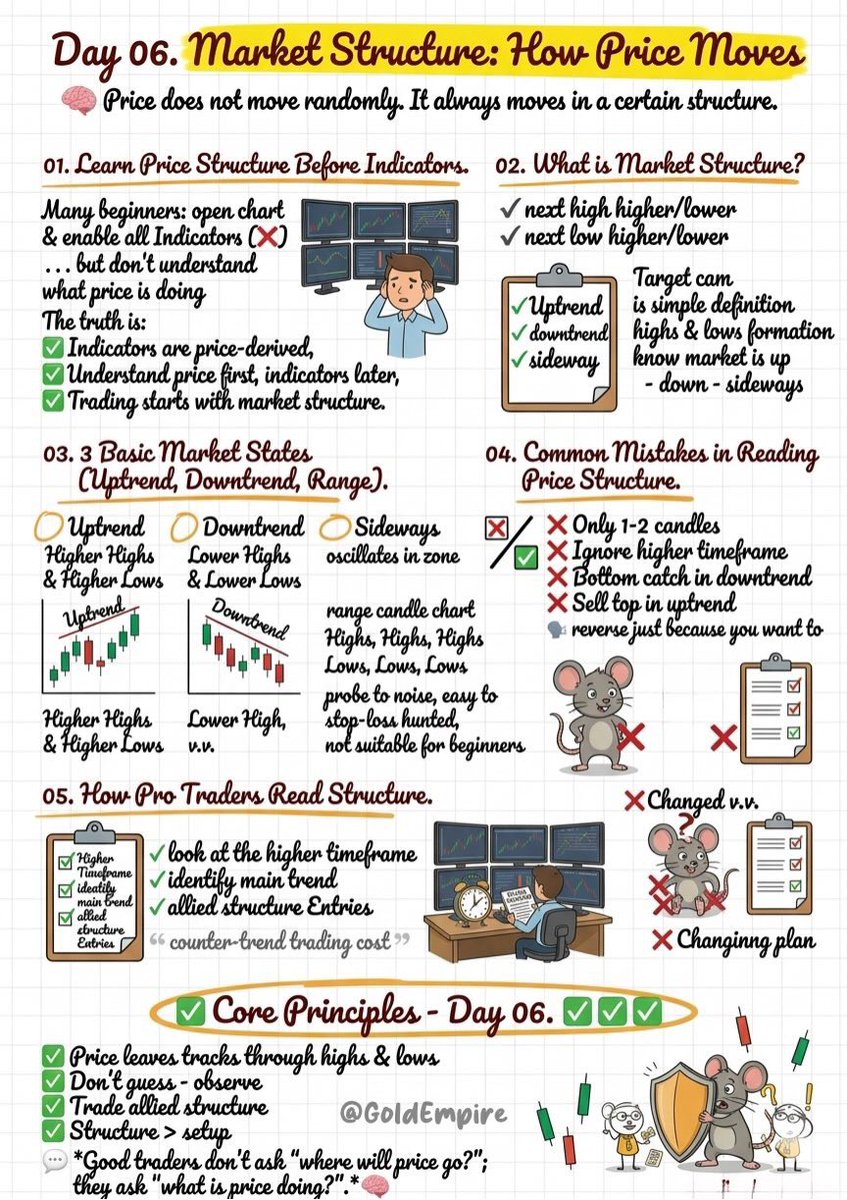 Day 06. Market Structure: How Price Moves
🧠 Price does not move randomly. It always moves in a certain structure.
01. Learn Price Structure Before Indicators.
Many beginners: open chart
& enable all Indicators (❌)
... but don't understand
what price is doing
The truth is:
✅ Indicators are price-derived,
✅ Understand price first, indicators later,
✅ Trading starts with market structure.
02. What is Market Structure?
✓ next high higher/lower
✓ next low higher/lower
✓ Uptrend
✓ downtrend
✓ sideway
Target cam
is simple definition
highs & lows formation
know market is up
- down - sideways
03. 3 Basic Market States
(Uptrend, Downtrend, Range).
Uptrend
Higher Highs
& Higher Lows
Uptrend
Higher Highs
& Higher Lows
Downtrend
Lower Highs
& Lower Lows
Downtrend
Lower High,
v.v.
Sideways
oscillates in zone
range candle chart
Highs, Highs, Highs
Lows, Lows, Lows
probe to noise, easy to
stop-loss hunted,
not suitable for beginners
04. Common Mistakes in Reading
Price Structure.
❌ Only 1-2 candles
❌ Ignore higher timeframe
❌ Bottom catch in downtrend
❌ Sell top in uptrend
🗣 reverse just because you want to
❌ Changed v.v.
?
❌ Changinng plan
05. How Pro Traders Read Structure.
Higher
Timeframe
ideatify
main trend
allied
structure
Entries
✓ look at the higher timeframe
✓ identify main trend
✓ allied structure Entries
“ counter-trend trading cost ”
✅ Core Principles - Day 06. ✅✅✅
✅ Price leaves tracks through highs & lows
✅ Don't guess - observe
✅ Trade allied structure
✅ Structure > setup
💬 *Good traders don't ask "where will price go?";
they ask "what is price doing?".*🧠
@GoldEmpire
? !